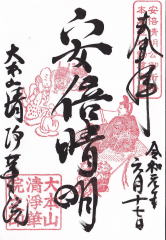 奉拝
安倍晴明公
安倍晴明
令和元年
六月十七日
大本山清浄華院
大本山
清浄華
院